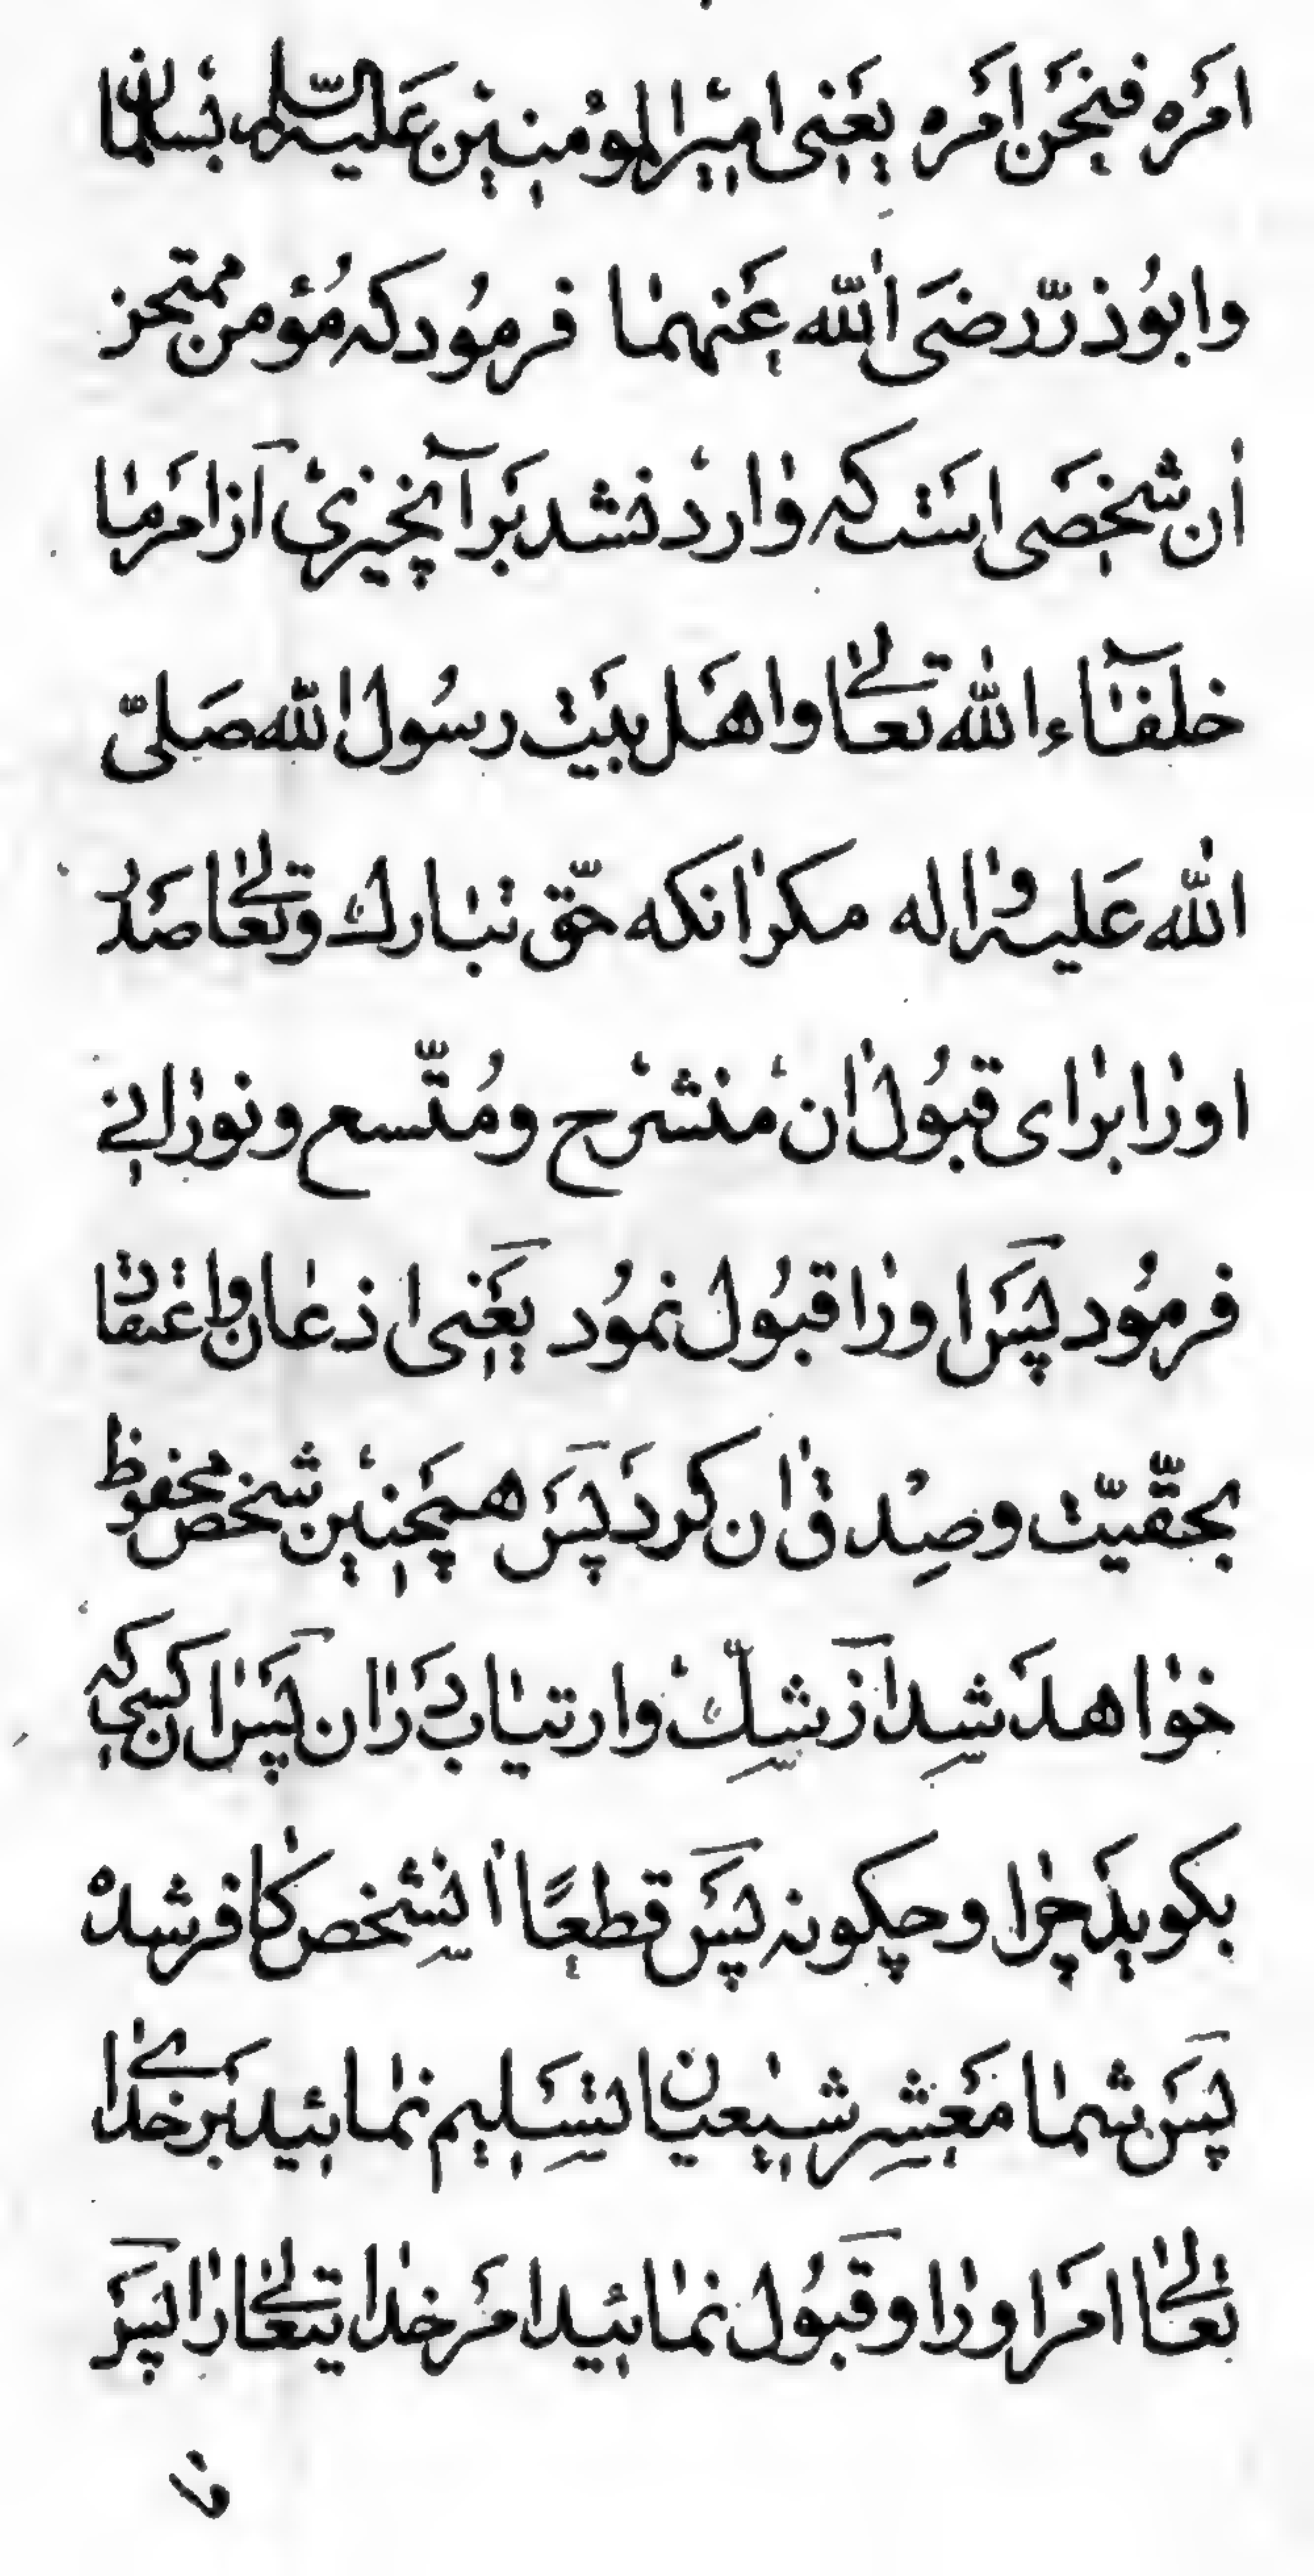 امَره فنحَن امَره يعَنى اميرالمؤمنين عَليه السّلم بسلمان
وابوُذرّ رضىَ الله عَنهما فرموُد كه مُؤمن ممتحن
ان شخصَى استَ كه وارد نشد برَ آنچيزى از امَر ما
خلفآء الله تعالى واهَل بيَت رسوُل الله صَلىّ
الله عَليه واله مكر انكه حقّ تبارك وتعالى صَدر
اورا براى قبوُل ان منشرح ومُتّسع ونورانى
فرموُد پسَ اورا قبوُل نموُد يعَنى اذعان واعتقاد
بحقّيّت وصِدق ان كردَ پسَ همچَنين شخص محفوظ
خواهدَ شد از شكّ وارتياب دَر ان پسَ ان كسى كه
بكويدَ چرا وچكونه پسَ قطعًا انشخص كافر شده
پسَ شما معَشر شيعيان تسَليم نمائيد برَ خداى
تعالى امَر اورا وقبوُل نمائيد امَر خدايتعالى را پسَ
ما